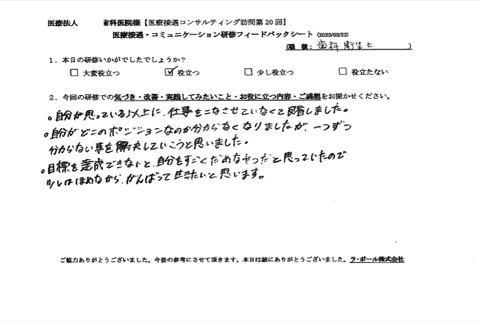 医療法人 歯科医院様【医療接遇コンサルティング訪問第20回】
医療接遇・コミュニケーション研修フィードバックシート (2025/02/22)
(職種: 歯科衛生士 )
1.本日の研修いかがでしたでしょうか?
□大変役立つ ☑役立つ □少し役立つ □役立たない
2.今回の研修での気づき・改善・実践してみたいこと・お役に立つ内容・ご感想をお聞かせください。
。自分が思っている以上に、仕事をこなせていなくて困惑しました。
。自分がどこのポジションなのか分からなくなりましたが、一つずつ
分からない事を解決していこうと思いました。
。目標を達成できないと、自分をすごくだめなやつだと思っていたので
少しはほめながら、がんばって生きたいと思います。
ご協力ありがとうございました。今後の参考にさせて頂きます。本日は誠にありがとうございました。ラ・ポール株式会社